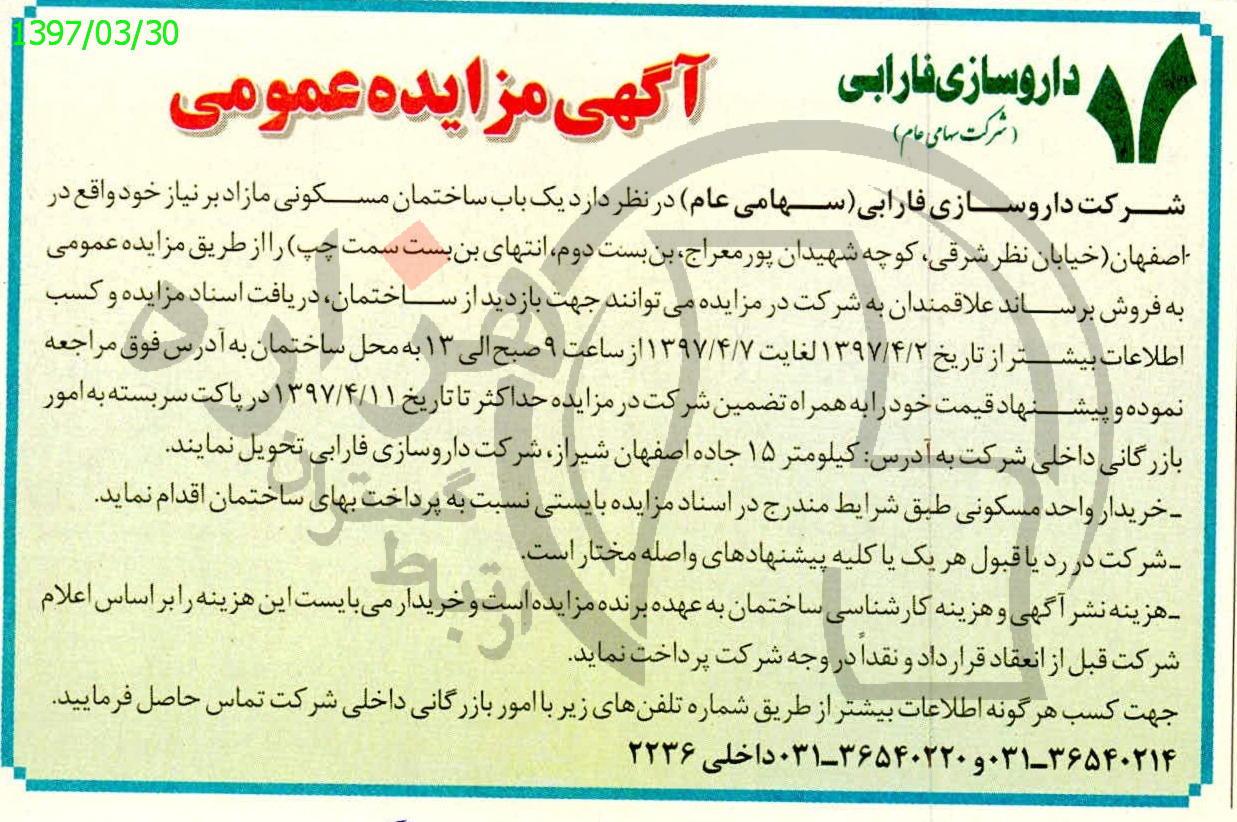 1397/03/30
داروسازی فارابی
(شرکت سهامی عام)
آگهی مزایده عمومی
شرکت داروسازی فارابی (سهامی عام) در نظر دارد یک باب ساختمان مسکونی مازاد بر نیاز خود واقع در
اصفهان (خیابان نظر شرقی، کوچه شهیدان پورمعراج، بن‌بست دوم، انتهای بن‌بست سمت چپ) را از طریق مزایده عمومی
به فروش برساند علاقمندان به شرکت در مزایده می‌توانند جهت بازدید از ساختمان، دریافت اسناد مزایده و کسب
اطلاعات بیشتر از تاریخ ۱۳۹۷/۴/۲ لغایت ۱۳۹۷/۴/۷ از ساعت ۹ صبح الی ۱۳ به محل ساختمان به آدرس فوق مراجعه
نموده و پیشنهاد قیمت خود را به همراه تضمین شرکت در مزایده حداکثر تا تاریخ ۱۳۹۷/۴/۱۱ در پاکت سربسته به امور
بازرگانی داخلی شرکت به آدرس: کیلومتر ۱۵ جاده اصفهان شیراز، شرکت داروسازی فارابی تحویل نمایند.
ـ خریدار واحد مسکونی طبق شرایط مندرج در اسناد مزایده بایستی نسبت به پرداخت بهای ساختمان اقدام نماید.
ـ شرکت در رد یا قبول هر یک یا کلیه پیشنهادهای واصله مختار است.
ـ هزینه نشر آگهی و هزینه کارشناسی ساختمان به عهده برنده مزایده است و خریدار می‌بایست این هزینه را بر اساس اعلام
شرکت قبل از انعقاد قرارداد و نقداً در وجه شرکت پرداخت نماید.
جهت کسب هر گونه اطلاعات بیشتر از طریق شماره تلفن‌های زیر با امور بازرگانی داخلی شرکت تماس حاصل فرمایید.
۰۳۱ـ۳۶۵۴۰۲۱۴ و ۰۳۱ـ۳۶۵۴۰۲۲۰ داخلی ۲۲۳۶
هزاره
گستران
ارتباط